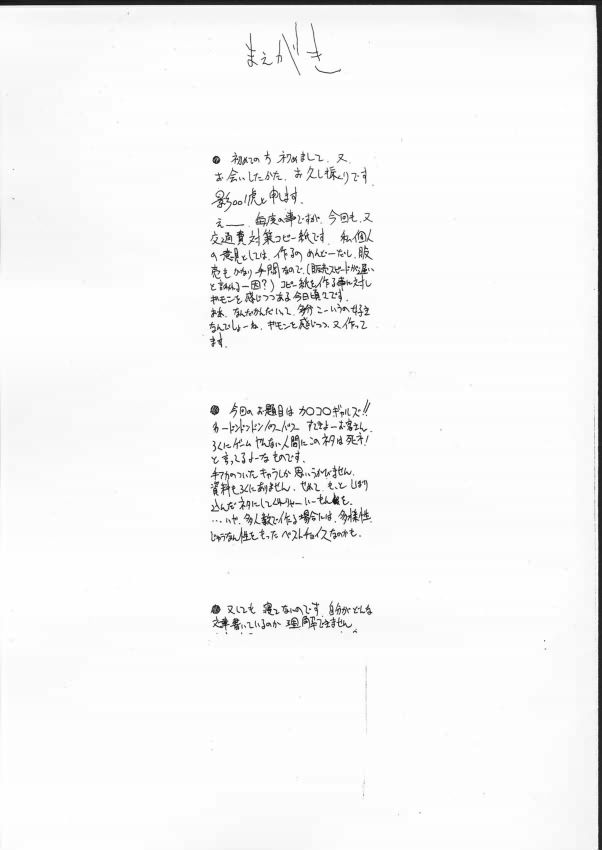 まえがき
● 初めての方 初めまして、又、
お会いしたかた、お久し振りです。
影001虎と申します。
え——、毎度の事ですが、今回も、又
交通費対策コピー紙です。私個人
の意見としては、作るの めんどーだし、販
売もかなり手間なので、(販売スピードが遅い
と言われる一因？) コピー紙を作る事に対し
ギモンを感じつつある今日頃です。
まあ、なんだかんだいって、こーいうの好き
なんでしょーね、ギモンを感じつつ、又作って
ます。
● 今回のお題目は カ〇コ〇ギャルズ!!
すぎよーお客さん、
ろくにゲームやんない人間にこのネタは死ネ!
と言ってるよーなものです。
チアカのついたキャラしか思いうかびません。
資料もろくにありません。せめて、もっと しぼり
込んだネタにしてくれりゃー いーもんを。
…いや、多人数で作る場合には、多様性、
じゅうなん性をもった ベストチョイスなのかも。
● 又しても 寝てないのです。自分がどんな
文章書いているのか 理解できません